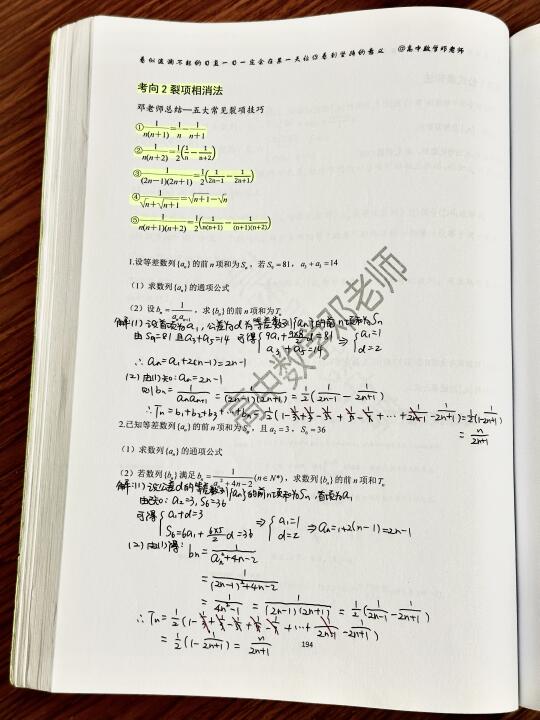 看似波澜不惊的日复一日一定会在某一天让你看到坚持的意义 @高中数学邓老师
考向2 裂项相消法
邓老师总结—五大常见裂项技巧
① 1/(n(n+1)) = 1/n - 1/(n+1)
② 1/(n(n+2)) = 1/2(1/n - 1/(n+2))
③ 1/((2n-1)(2n+1)) = 1/2(1/(2n-1) - 1/(2n+1))
④ 1/(√n+√(n+1)) = √(n+1) - √n
⑤ 1/(n(n+1)(n+2)) = 1/2(1/(n(n+1)) - 1/((n+1)(n+2)))
1.设等差数列{aₙ}的前n项和为Sₙ,若S₉=81,a₃+a₅=14
(1)求数列{aₙ}的通项公式
(2)设bₙ=1/(aₙaₙ₊₁),求{bₙ}的前n项和为Tₙ
解:(1)设首项为a₁,公差为d为等差数列{aₙ}的前n项和为Sₙ
由S₉=81且a₃+a₅=14 可得{9a₁+(9×8)/2 d=81 a₃+a₅=14 ⇒{a₁=1 d=2
∴aₙ=a₁+2(n-1)=2n-1
(2)由(1)知:aₙ=2n-1
则bₙ=1/(aₙaₙ₊₁)=1/((2n-1)(2n+1))=1/2(1/(2n-1)-1/(2n+1))
∴Tₙ=b₁+b₂+b₃+…+bₙ=1/2(1-1/3+1/3-1/5+1/5-1/7+…+1/(2n-1)-1/(2n+1))=1/2(1-1/(2n+1))
=n/(2n+1)
2.已知等差数列{aₙ}的前n项和为Sₙ,且a₂=3,S₆=36
(1)求数列{aₙ}的通项公式
(2)若数列{bₙ}满足bₙ=1/(aₙ²+4n-2)(n∈N*),求数列{bₙ}的前n项和Tₙ
解:(1)设公差d的等差数列{aₙ}的前n项和为Sₙ,首项为a₁
由题知:a₂=3,S₆=36
可得{a₁+d=3 S₆=6a₁+(6×5)/2 d=36 ⇒{a₁=1 d=2 ⇒aₙ=1+2(n-1)=2n-1
(2)由(1)得:bₙ=1/(aₙ²+4n-2)
=1/((2n-1)²+4n-2)
=1/(4n²-1)=1/((2n-1)(2n+1))=1/2(1/(2n-1)-1/(2n+1))
∴Tₙ=1/2(1-1/3+1/3-1/5+1/5-1/7+…+1/(2n-1)-1/(2n+1))
=1/2(1-1/(2n+1))=n/(2n+1)
194
高中数学邓老师